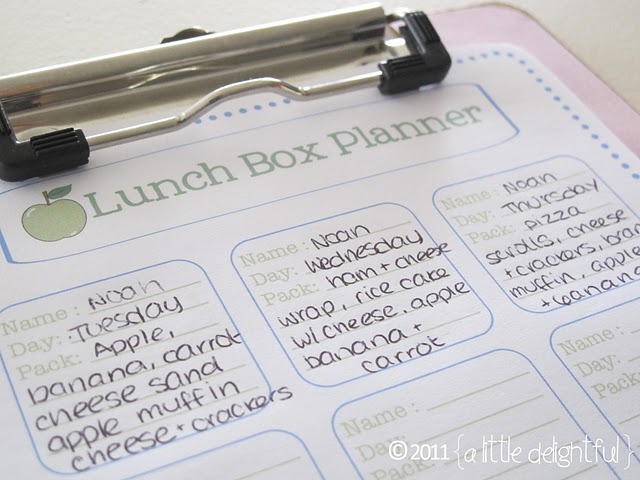 Lunch Box Planner
Name: Noah
Day: Tuesday
Pack: Apple,
banana, carrot
cheese sand
apple muffin
cheese + crackers
Name: Noah
Day: Wednesday
Pack: ham + cheese
wrap, rice cake
w/ cheese, apple
banana +
carrot
Name: Noah
Day: Thursday
Pack: pizza
scrolls, cheese
+ crackers, bran
muffin, apple
+ banana
Name:
Day:
Pack:
Name:
Day:
Pack:
© 2011 {a little delightful}